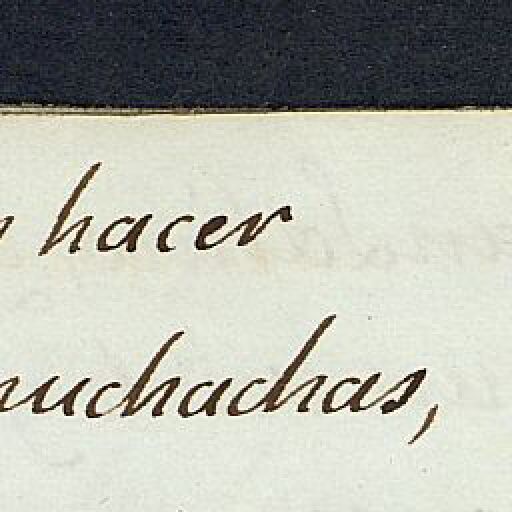 hacer
muchachas,